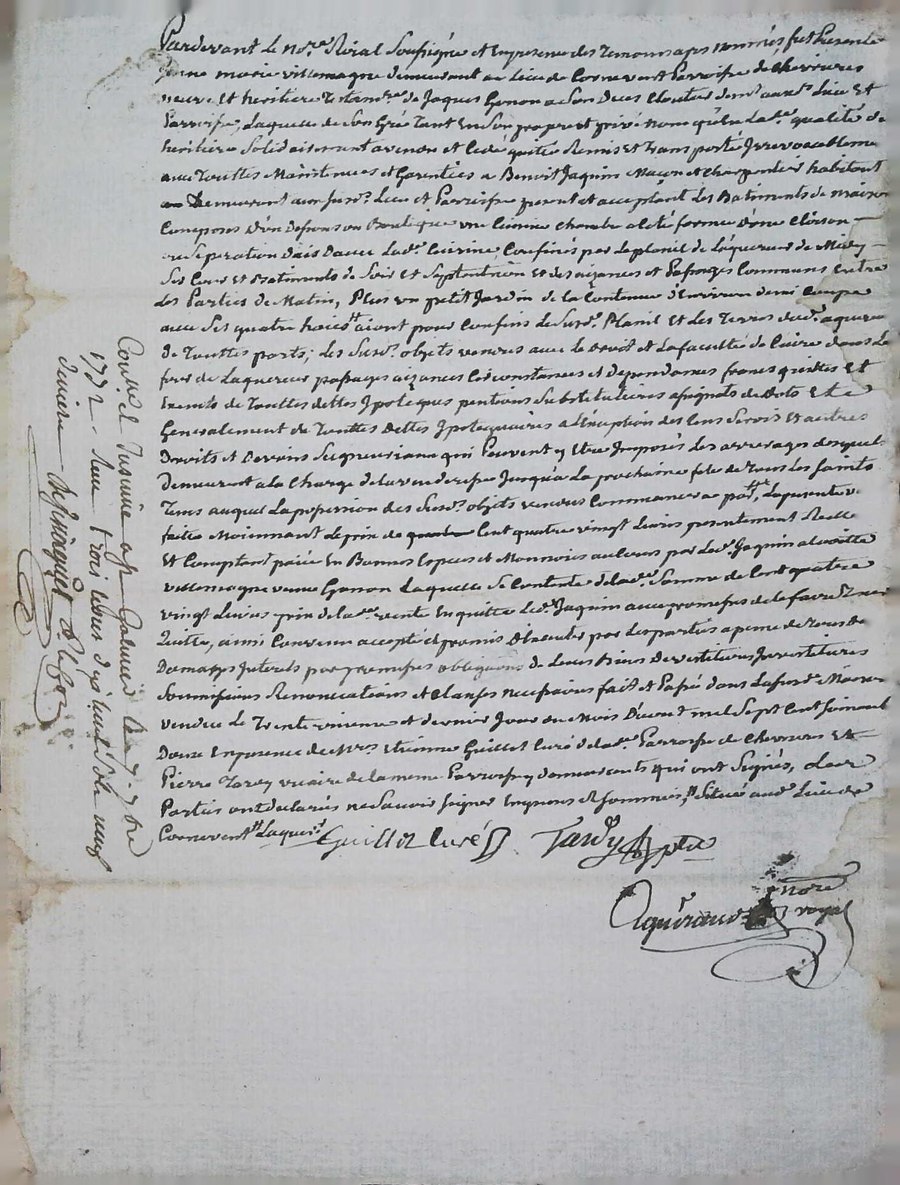 Pardevant le no.re Roial Soussigné et En presence des Temoins apres nommés, fut presente
Anne marie villemagne demeurant au Lieu de Cornevent Parroisse de chevrieres
veuve et heritiere testam.re de Jaques Genon a Son Deces Cloutier dem.t aud. Lieu Et
Parroisse, Laquelle de Son Gré Tant En Son propre et privé nom qu'En La d.e qualité de
heritiere Solidairement a vendu et Cedé quitté Remis et transporté Irrevocablement
avec Touttes Maintenues et Garenties a Benoit Jaquin Maçon et Charpentier habitant
demeurant aux susd. Lieu et Parroisse present et acceptant des Batiments de maison
Composés D'un Boutique une Cuisine chambre a Coté formée D'une Cloison
ou Separation D'ais Dans Lad.e Cuisine, Confinés par Le planil de Laquereur de Midy
Ses Cour et Batiments de Soir et Septentrion et des aizances et Passages Communs Entre
Les Parties de Matin, Plus un petit Jardin de la Contenue d'Environ demi Coupe
avec Ses quatre haies aiant pour Confins Le Susd. Planil et Les Terres dud. aquereur
de Touttes parts; les Susd. objets vendus avec Le Droit et La faculté de Cuire dans Le
four de Laquereur passages aizances Circonstances et Dependances francs quittes et
Exempts de Touttes dettes Ipoteques pentions Substitutions assignats de Dots Et
Generalement de Touttes Dettes Ipotequaires a L'Exeption des Cens Servis Et autres
Droits et Devoirs Seigneuriaux qui Peuvent y Etre Imposés Les arrerages desquels
Demeurent a la Charge de la venderesse Jusqu'a La prochaine fete de Tous Les Saints
Tems auquel La possession des Susd. objets vendus Commancera La presente v.
faite Moiennant Le prix de Cent quatre vingt Livres presentement Reelle
Et Comptant paiée En Bonnes Especes et Monnoies au Cours par Led. Jaquin a Laditte
villemagne veuve Genon Laquelle Se Contente de lad. Somme de Cent quatre
vingt Livres prix de la d.e vente En quitte Led. Jaquin avec promesse de le faire Tenir
Quitte, ainsi Convenu accepté et promis Executer par Les parties a peine de Tous De
Domages Interets par promesses obligations de Leurs Biens Devestitures Investitures
Soumissions Renonciations et Clauses necessaires fait et Passé dans La
vendue Le Trente unieme et dernier Jour du Mois D'aoust mil Sept Cent Soixante
Douze En presence de M.rs Etienne Guillot Curé de lad. Parroisse de Chevrieres Et
Pierre Tardy vicaire de la meme Parroisse y demeurants qui ont Signés, Les
Parties ont declarés ne Savoir Signer Enquises et Sommées, Situé aud. Lieu de
Cornevent Laquer.
Guillot Curé Tardy ptre
Aguiraud nore
royal
Con.llé et Insinué a St Galmier Le 7.bre
1772 Reçu trois Livres dix huit Sols neuf
deniers